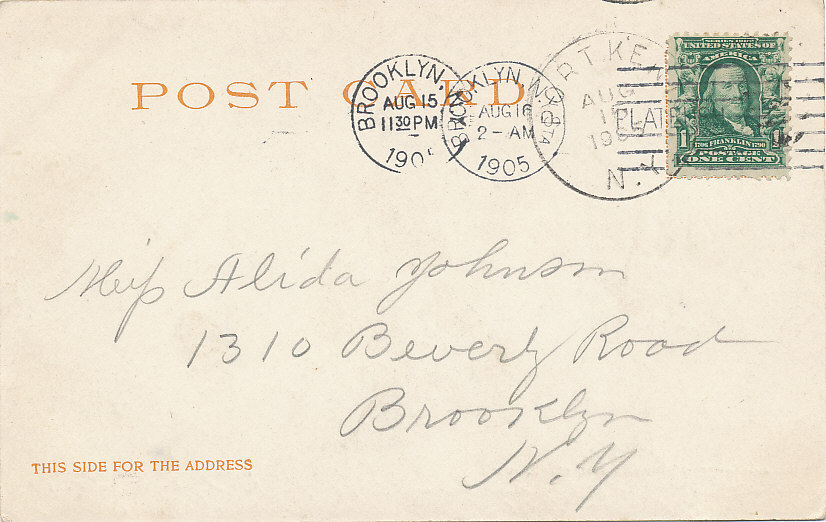 POST CARD
BROOKLYN,
AUG 15
11 30 PM
190
BROOKLYN, N.Y.
AUG 16
2 - AM
1905
STA
N.Y.
AUG
PLAT
SERIES 1902
UNITED STATES OF
AMERICA
1
1706 FRANKLIN 1790
POSTAGE
ONE CENT
Miss Alida Johnson
1310 Beverly Road
Brooklyn
N.Y
THIS SIDE FOR THE ADDRESS